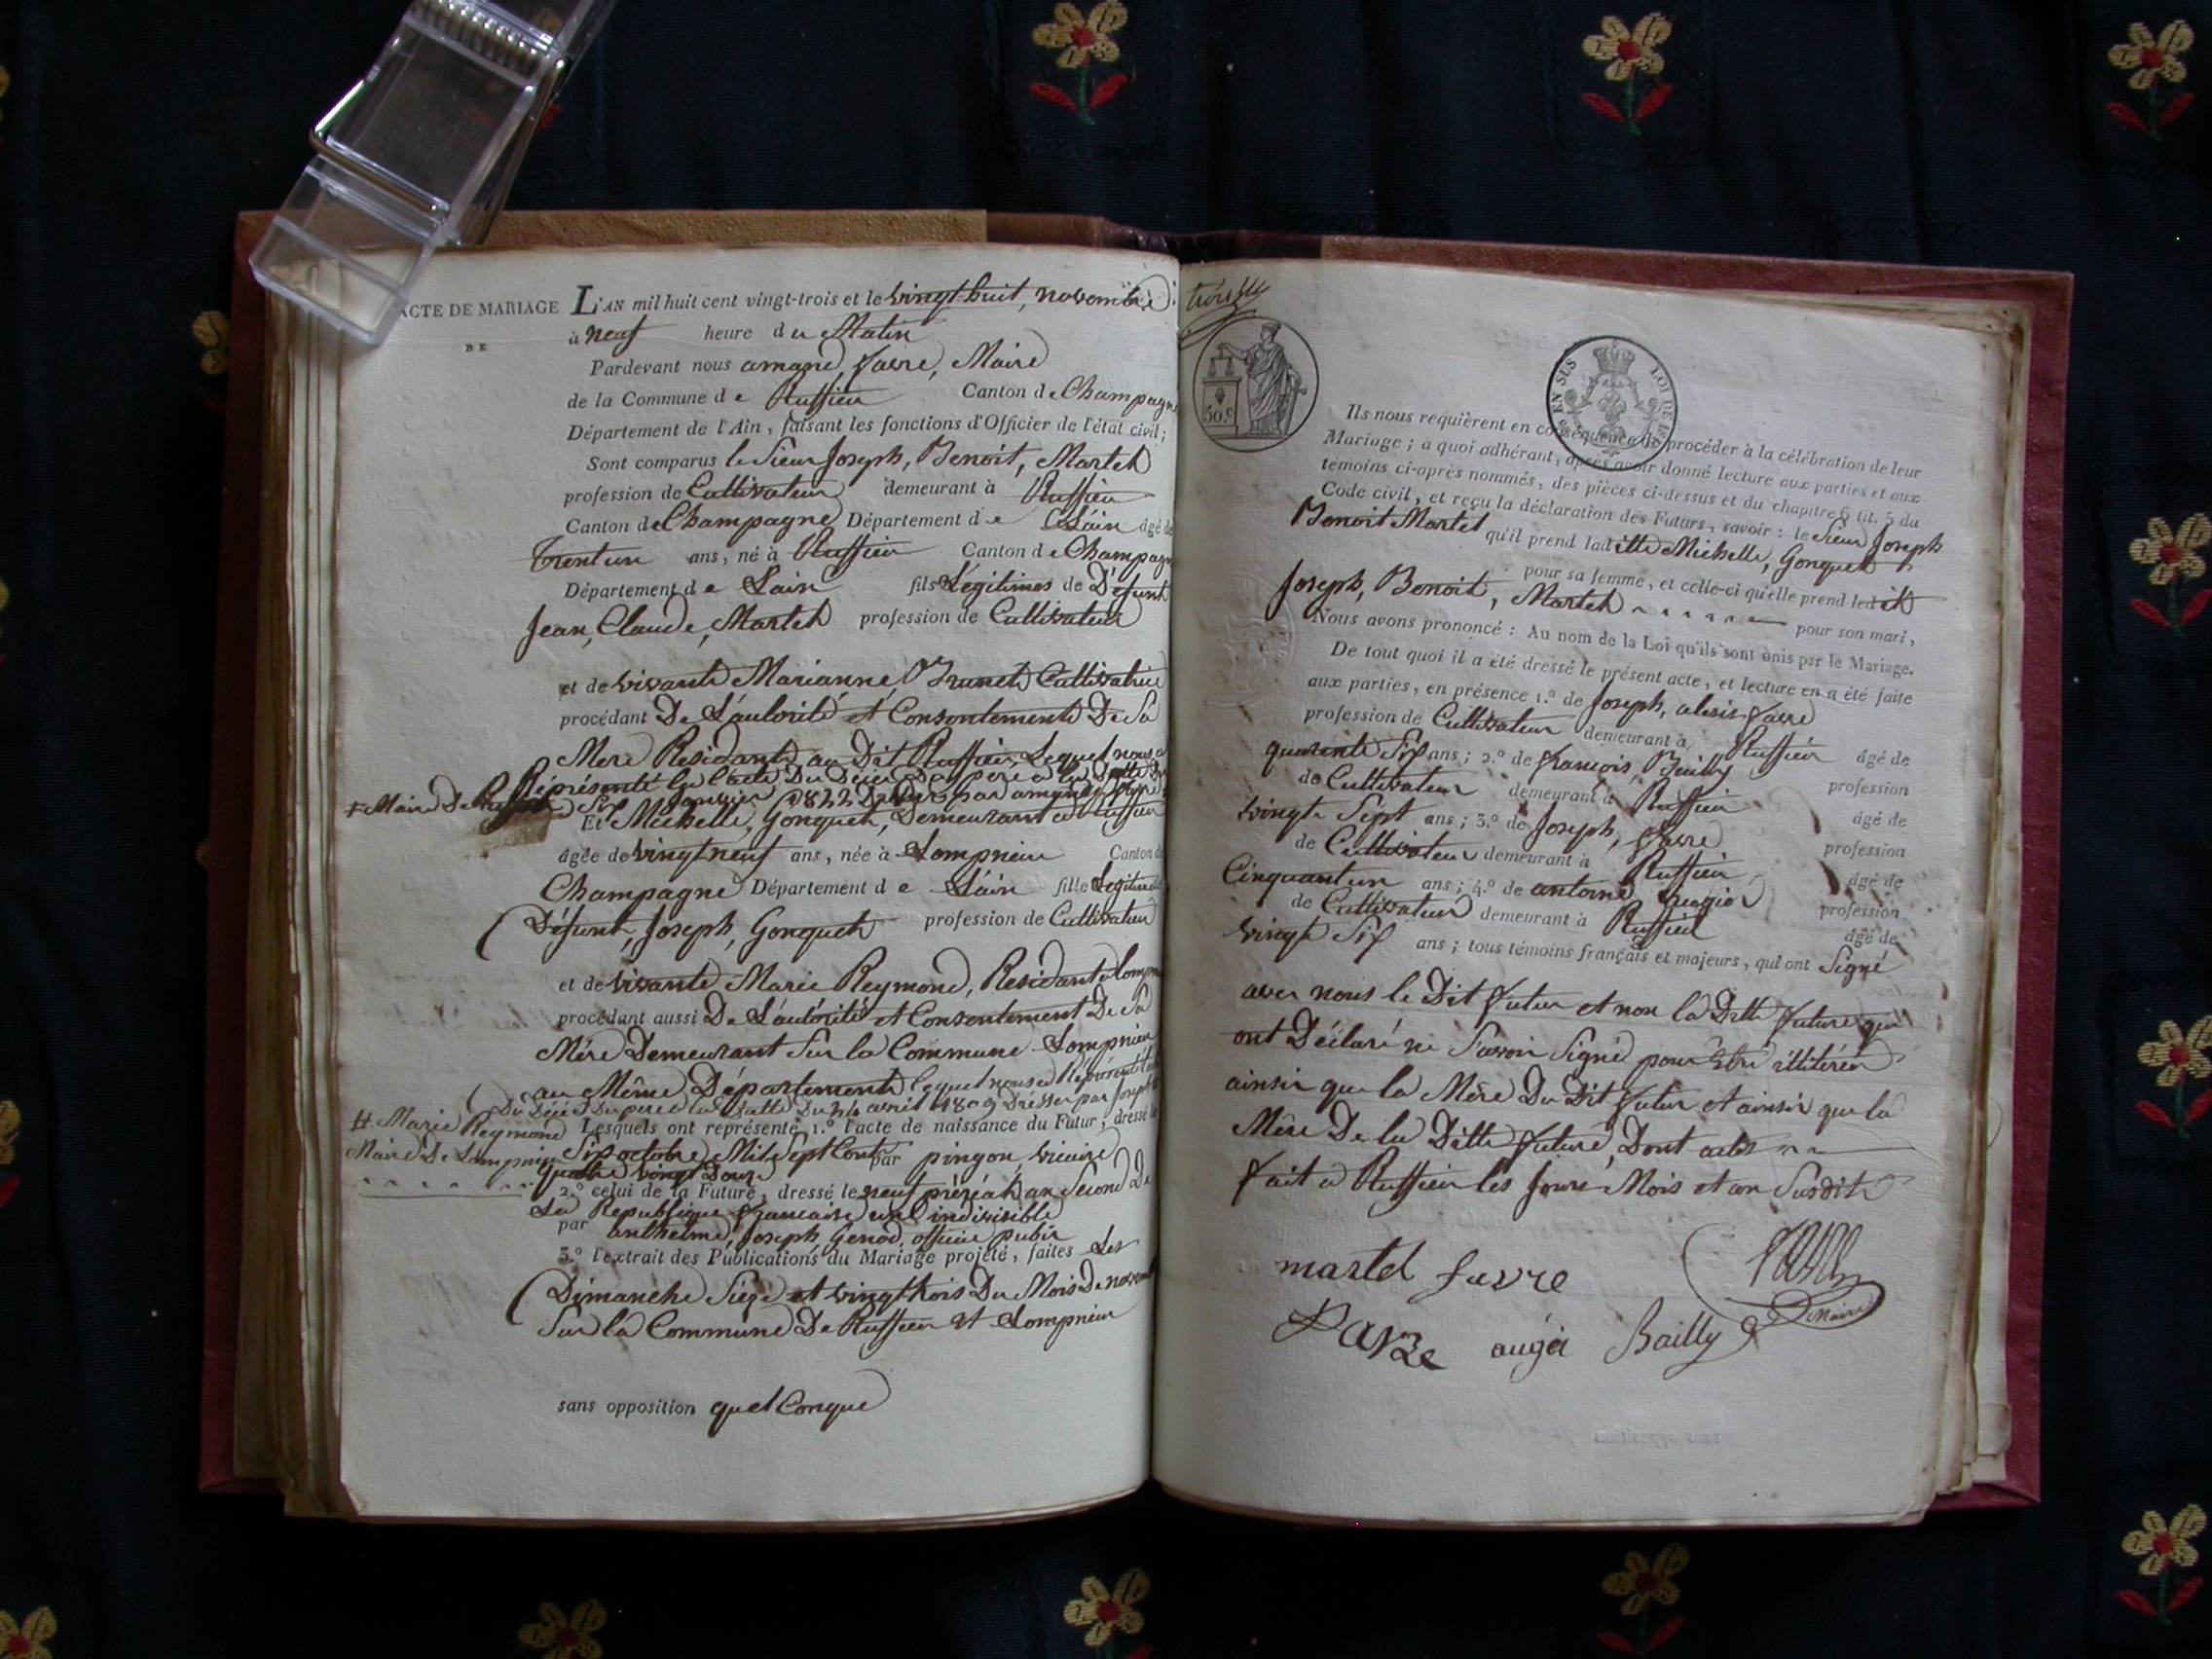 ACTE DE MARIAGE
DE
L'AN mil huit cent vingt-trois et le vingt huit, novembre
à neuf heure du Matin
Pardevant nous amand, favre, Maire
de la Commune de Ruffieu Canton de Champagne
Département de l'Ain, faisant les fonctions d'Officier de l'état civil;
Sont comparus le Sieur Joseph, Benoit, Martel
profession de Cultivateur demeurant à Ruffieu
Canton de Champagne Département de Lain âgé de
Trentun ans, né à Ruffieu Canton de Champagne
Département de Lain fils Légitimes de Défunt
Jean, Claude, Martel profession de Cultivateur
et de vivante Marianne Brunet Cultivatrice
procédant De Lautorité et Consentement De Sa
Mere Residante au Dit Ruffieu Lequel nous a
Réprésenté Du Père
janvier 1822
‡ Maire De
Et Michelle, Gonguet, Demeurant a Ruffieu
âgée de vingt neuf ans, née à Lompnieu Canton de
Champagne Département de Lain fille Légitime
Défunt, Joseph, Gonguet profession de Cultivateur
et de vivante Marie Reymond, Residante
procédant aussi De Lautorité et Consentement De Sa
Mére Demeurant Sur la Commune Lompnieu
au Même Département lequel nous a Représenté
Du Décès Du pere avril 1809 Dressé par Joseph
# Marie Reymond
Maire De Lompnieu
Lesquels ont représenté 1.º l'acte de naissance du Futur, dressé le
Six octobre Mil Sept Cent par pingon vicaire
quatre vingt Douze
2.º celui de la Future, dressé le neuf préréal an Second De
La Republique francaise une indivisible
par anthelme, Joseph Genod, officier public
3.º l'extrait des Publications du Mariage projeté, faites Les
Dimanche Sieze et vingt trois Du Mois De
Sur la Commune De Ruffieu et Lompnieu
sans opposition quel Conque
50.c
EN SUS LOI DE
Ils nous requièrent en conséquence de procéder à la célébration de leur
Mariage; à quoi adhérant, après avoir donné lecture aux parties et aux
témoins ci-après nommés, des pièces ci-dessus et du chapitre 6 tit. 5 du
Code civil, et reçu la déclaration des Futurs, savoir: le Sieur Joseph
Benoit Martel qu'il prend ladite Michelle, Gonguet
pour sa femme, et celle-ci qu'elle prend ledit
Joseph, Benoit, Martel pour son mari,
Nous avons prononcé: Au nom de la Loi qu'ils sont unis par le Mariage.
De tout quoi il a été dressé le présent acte, et lecture en a été faite
aux parties, en présence 1.º de Joseph, alexis favre
profession de Cultivateur demeurant à Ruffieu âgé de
quarente Six ans; 2.º de francois, Bailly profession
de Cultivateur demeurant à Ruffieu âgé de
vingte Sept ans; 3.º de Joseph, favre profession
de Cultivateur demeurant à Ruffieu âgé de
Cinquantun ans; 4.º de antoine profession
de Cultivateur demeurant à Ruffieu âgé de
vingte Six ans; tous témoins français et majeurs, qui ont Signé
avec nous le Dit futur et non la Ditte future qui
ont Déclaré ne Savoir Signé pour Etre illiterée
ainsi que la Mére Du Dit futur et ainsi que la
Mére De la Ditte future, Dont acte
fait a Ruffieu les Jours Mois et an Susdit
martel favre
favre augér Bailly
Maire